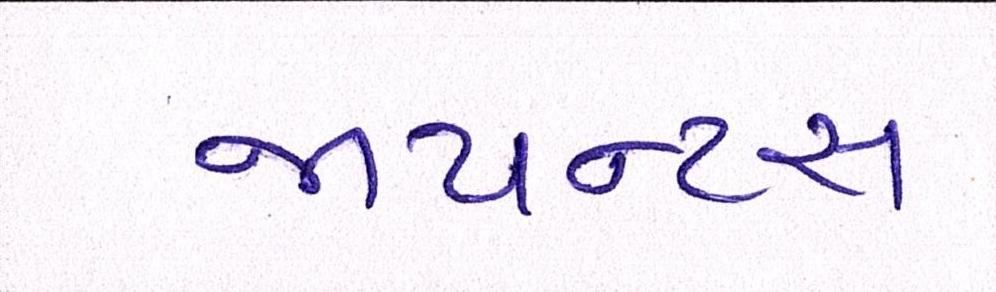 જાયન્ટસ